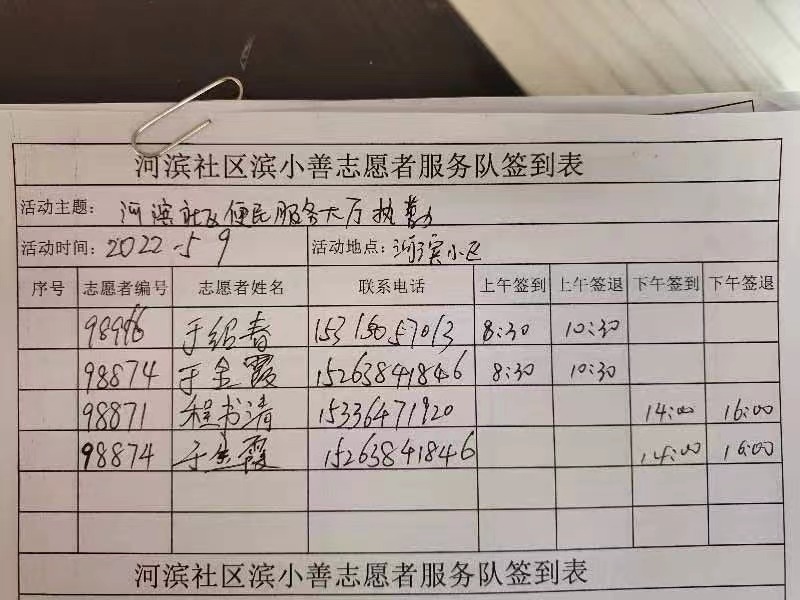 河滨社区滨小善志愿者服务队签到表
活动主题: 河滨社区便民服务大厅执勤
活动时间: 2022.5 9 活动地点: 河滨小区
序号 志愿者编号 志愿者姓名 联系电话 上午签到 上午签退 下午签到 下午签退
于绍春 8:30 10:30
98874 于金霞 15263841846 8:30 10:30
98871 程书清 15336471920 14:00 16:00
98874 于金霞 15263841846 14:00 16:00
河滨社区滨小善志愿者服务队签到表